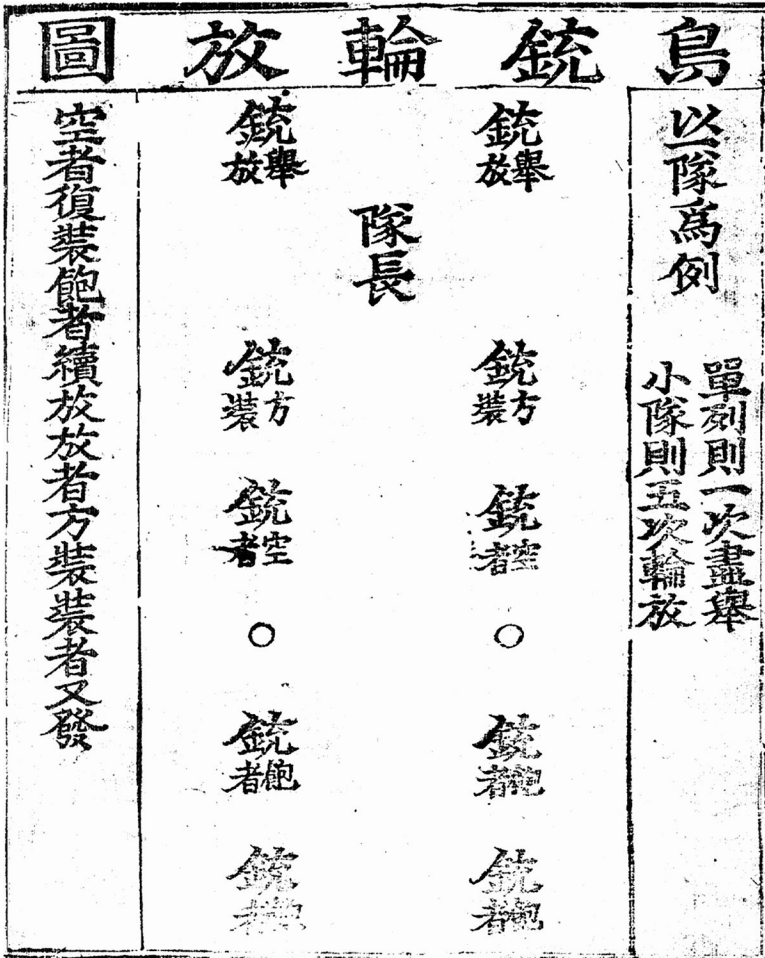 鳥銃輪放圖
以一隊爲例
單列則一次盡舉
小隊則五次輪放
銃舉放
銃方裝
銃空者
○
銃飽者
銃飽者
隊長
銃舉放
銃方裝
銃空者
○
銃飽者
銃
空者復裝飽者續放放者方裝裝者又發